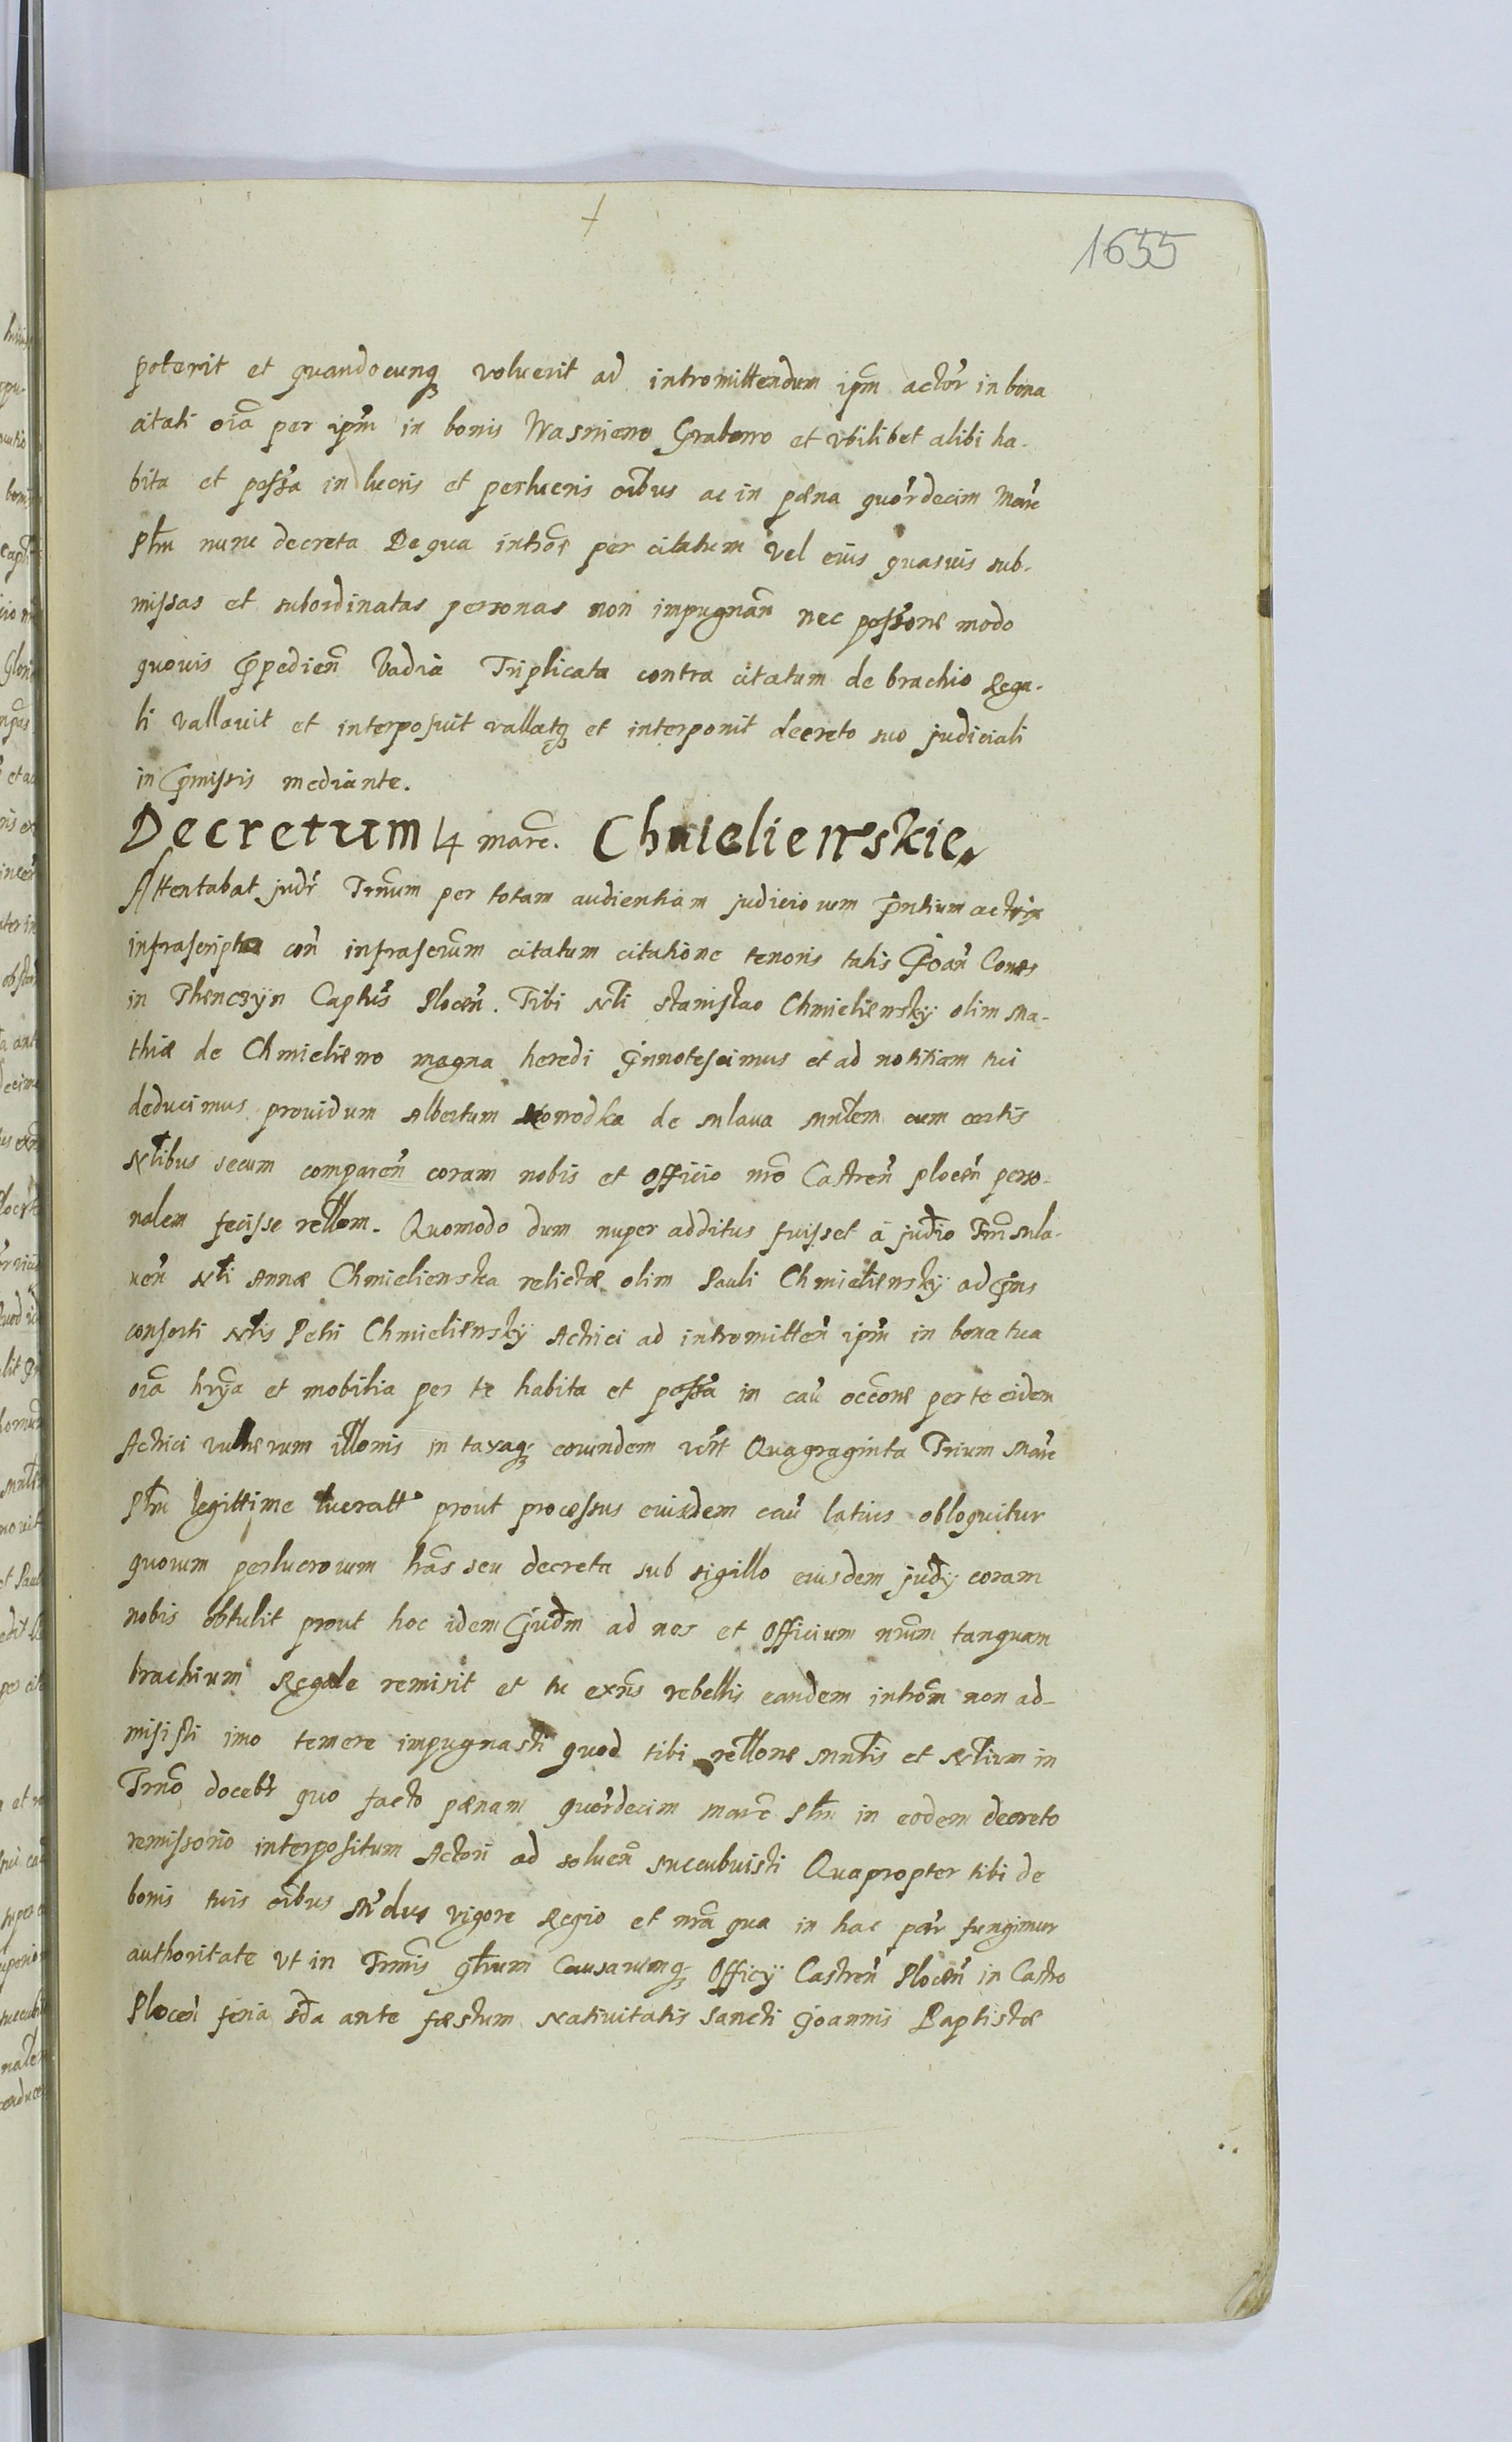 1655
poterit et quandocunq voluerit ad intromittendum ipm actor in bona
citati oia per ipm in bonis Wasniewo Grabowo et vbilibet alibi ha-
bita et possa in lucris et perlucris oibus ac in pæna quordecim Marc
Plm nunc decreta De qua introe per citatum vel eius quasuis sub-
missas et subordinatas personas non impugnan nec possone modo
quouis Ppedien Vadia Triplicata contra citatum de brachio Rega-
li vallauit et interposuit vallatq et interponit decreto suo judiciali
in Pmissis mediante.
Decretum 14 marc. Chmieliewskie
Attentabat judr Trnum per totam audientiam judiciorum Pntium actrix
infrascripta con infrascrum citatum citatione tenoris talis Joan Comes
in Thenczyn Captus Plocen. Tibi Nli Stanislao Chmieliensky olim Ma-
thiæ de Chmieliewo magna heredi Innotescimus et ad notitiam tui
deducimus prouidum Albertum de Mlaua Mnlem cum certis
Nlibus secum comparen coram nobis et Officio nro Castren plocen perso-
nalem fecisse rellom. Quomodo dum nuper additus fuisset á judio Trri Mla-
uen Nli Annæ Chmielienska relictæ olim Pauli Chmieliensky ad Pns
consorti Nlis Petri Chmieliensky Actrici ad intromitten ipm in bona tua
oia hrya et mobilia per te habita et possa in cau occone per te eidem
Actrici vulnerum illonis in taxaq eorundem vert Quagraginta Trium Marc
Plm legittime lucratt prout processus eiusdem cau latius obloquitur
quorum perlucrorum lras seu decreta sub sigillo eiusdem judy coram
nobis obtulit prout hoc idem Judm ad nos et Officium nrum tanquam
brachium Regale remisit et tu exns rebellis eandem introm non ad-
misisti imo temere impugnasti quod tibi rellone Mnlis et Nlium in
Trno docebr quo facto pænam quordecim marc Plm in eodem decreto
remissorio interpositum Actori ad soluen succubuisti Quapropter tibi de
bonis tuis oibus Mdus vigore Regio et nra qua in hac par fungimur
authoritate vt in Trmis qlrum Causarumq Officy Castren Plocen in Castro
Plocen feria sda ante fæstum Natiuitatis Sancti Joannis Baptistæ